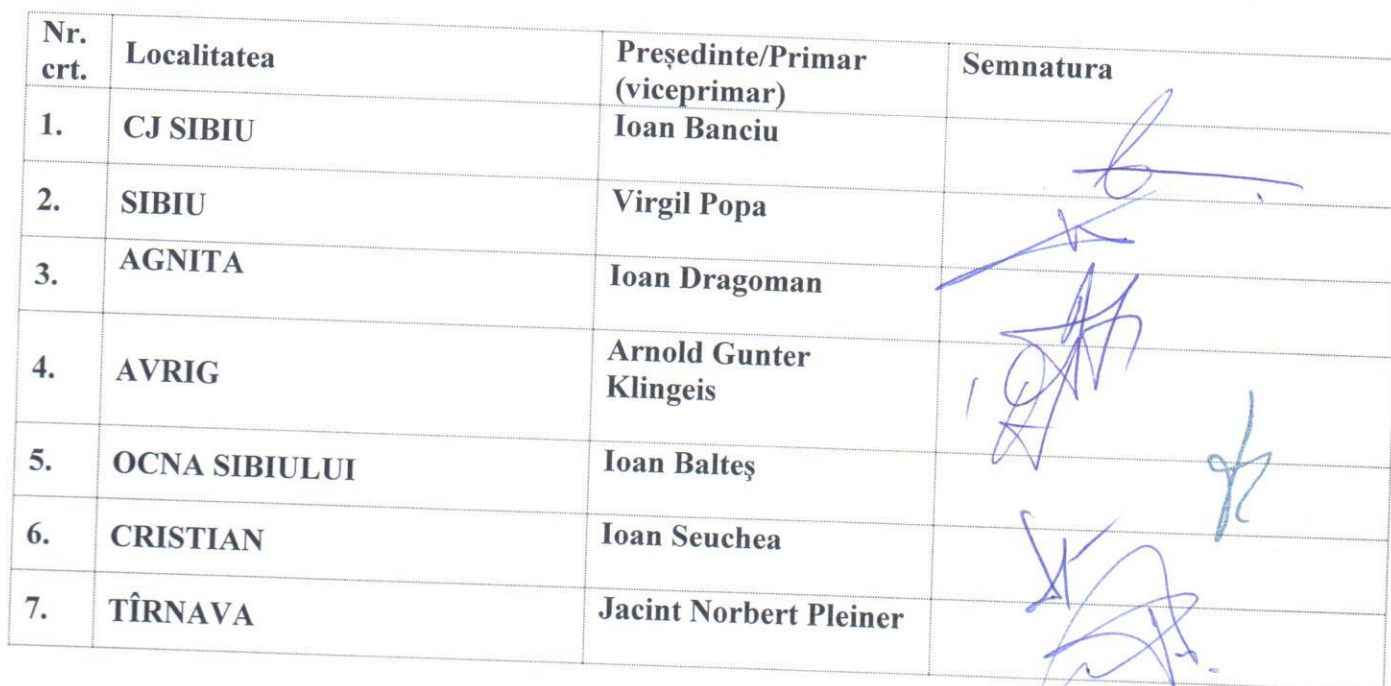 Nr. crt. Localitatea Președinte/Primar (viceprimar) Semnatura
1. CJ SIBIU Ioan Banciu
2. SIBIU Virgil Popa
3. AGNITA Ioan Dragoman
4. AVRIG Arnold Gunter Klingeis
5. OCNA SIBIULUI Ioan Balteş
6. CRISTIAN Ioan Seuchea
7. TÎRNAVA Jacint Norbert Pleiner